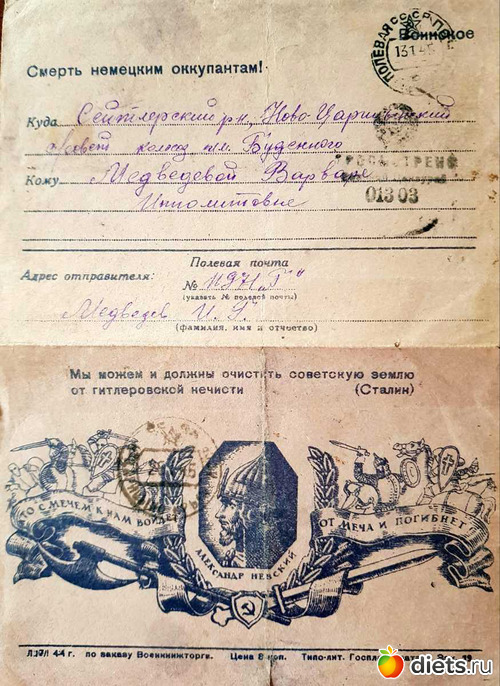 ПОЛЕВАЯ СССР ПО
13.1.45
Воинское
Смерть немецким оккупантам!
Куда Сейтлерский р-н, Ново-Царицынский
Совет колхоз им. Буденного
Кому Медведевой Варваре
Ипполитовне
ПРОСМОТРЕНО
01303
Полевая почта
Адрес отправителя: №
(указать № полевой почты)
Медведев И.
(фамилия, имя и отчество)
Мы можем и должны очистить советскую землю
от гитлеровской нечисти (Сталин)
КТО С МЕЧЕМ К НАМ ВОЙДЕТ
ОТ МЕЧА И ПОГИБНЕТ!
АЛЕКСАНДР НЕВСКИЙ
44 г. по заказу Военкнижторга. Цена 8 коп. Типо-лит. 19
diets.ru